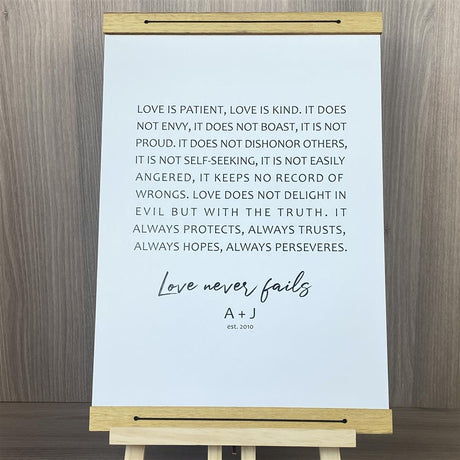 LOVE IS PATIENT, LOVE IS KIND. IT DOES
NOT ENVY, IT DOES NOT BOAST, IT IS NOT
PROUD. IT DOES NOT DISHONOR OTHERS,
IT IS NOT SELF-SEEKING, IT IS NOT EASILY
ANGERED, IT KEEPS NO RECORD OF
WRONGS. LOVE DOES NOT DELIGHT IN
EVIL BUT WITH THE TRUTH. IT
ALWAYS PROTECTS, ALWAYS TRUSTS,
ALWAYS HOPES, ALWAYS PERSEVERES.
Love never fails
A + J
est. 2010